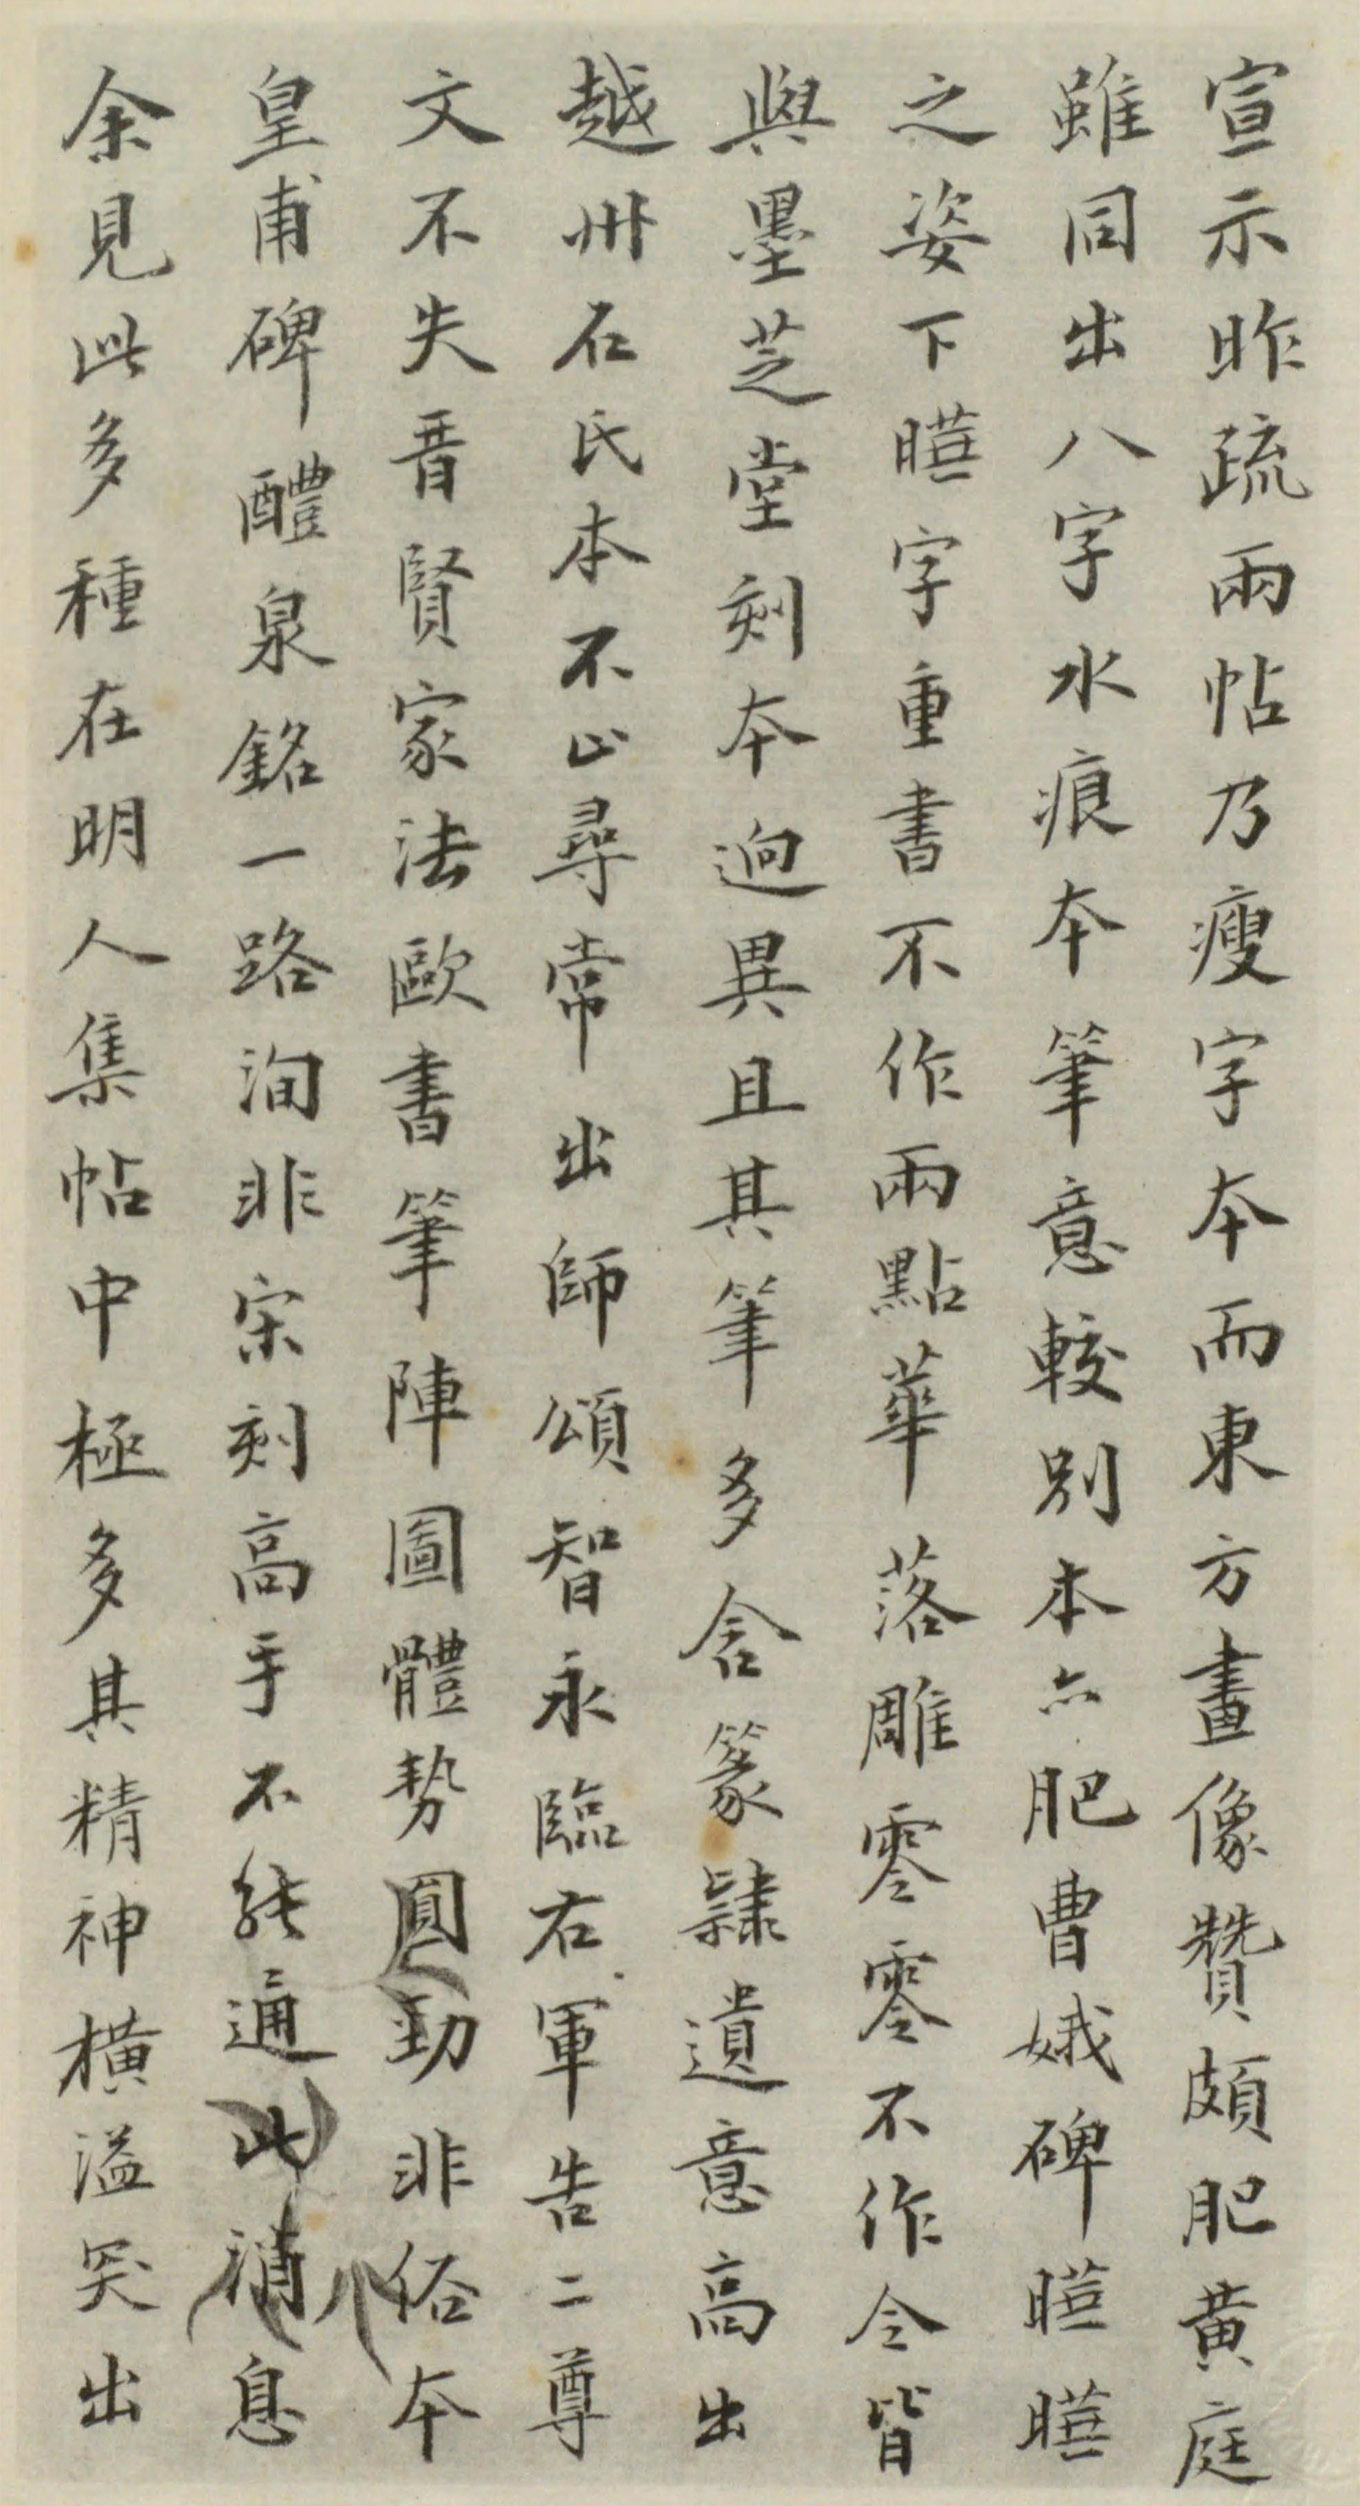 宣示昨疏兩帖乃瘦字本而東方畫像贊頗肥黃庭
雖同出八字水痕本筆意較別本亦肥曹娥碑曀曀
之姿下曀字重書不作兩點華落雕零零不作令皆
與墨芝堂刻本迥異且其筆多含篆隸遺意高出
越州石氏本不止尋常出師頌智永臨右軍告二尊
文不失晋賢家法歐書筆陣圖體勢圓勁非俗本
皇甫碑醴泉銘一路洵非宋刻高手不能通此消息
余見此多種在明人集帖中極多其精神橫溢突出